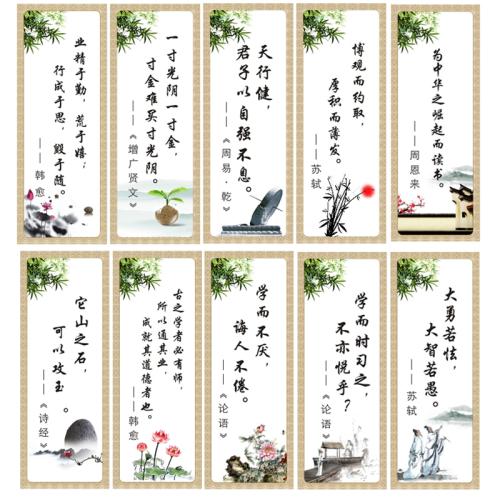 业精于勤，荒于嬉；
行成于思，毁于随。
——韩愈
一寸光阴一寸金，
寸金难买寸光阴。
——《增广贤文》
天行健，
君子以自强不息。
——《周易·乾》
博观而约取，
厚积而薄发。
——苏轼
为中华之崛起而读书。
——周恩来
它山之石，
可以攻玉。
——《诗经》
古之学者必有师，
所以通其业，
成就其道德者也。
——韩愈
学而不厌，
诲人不倦。
——《论语》
学而时习之，
不亦悦乎？
——《论语》
大勇若怯，
大智若愚。
——苏轼